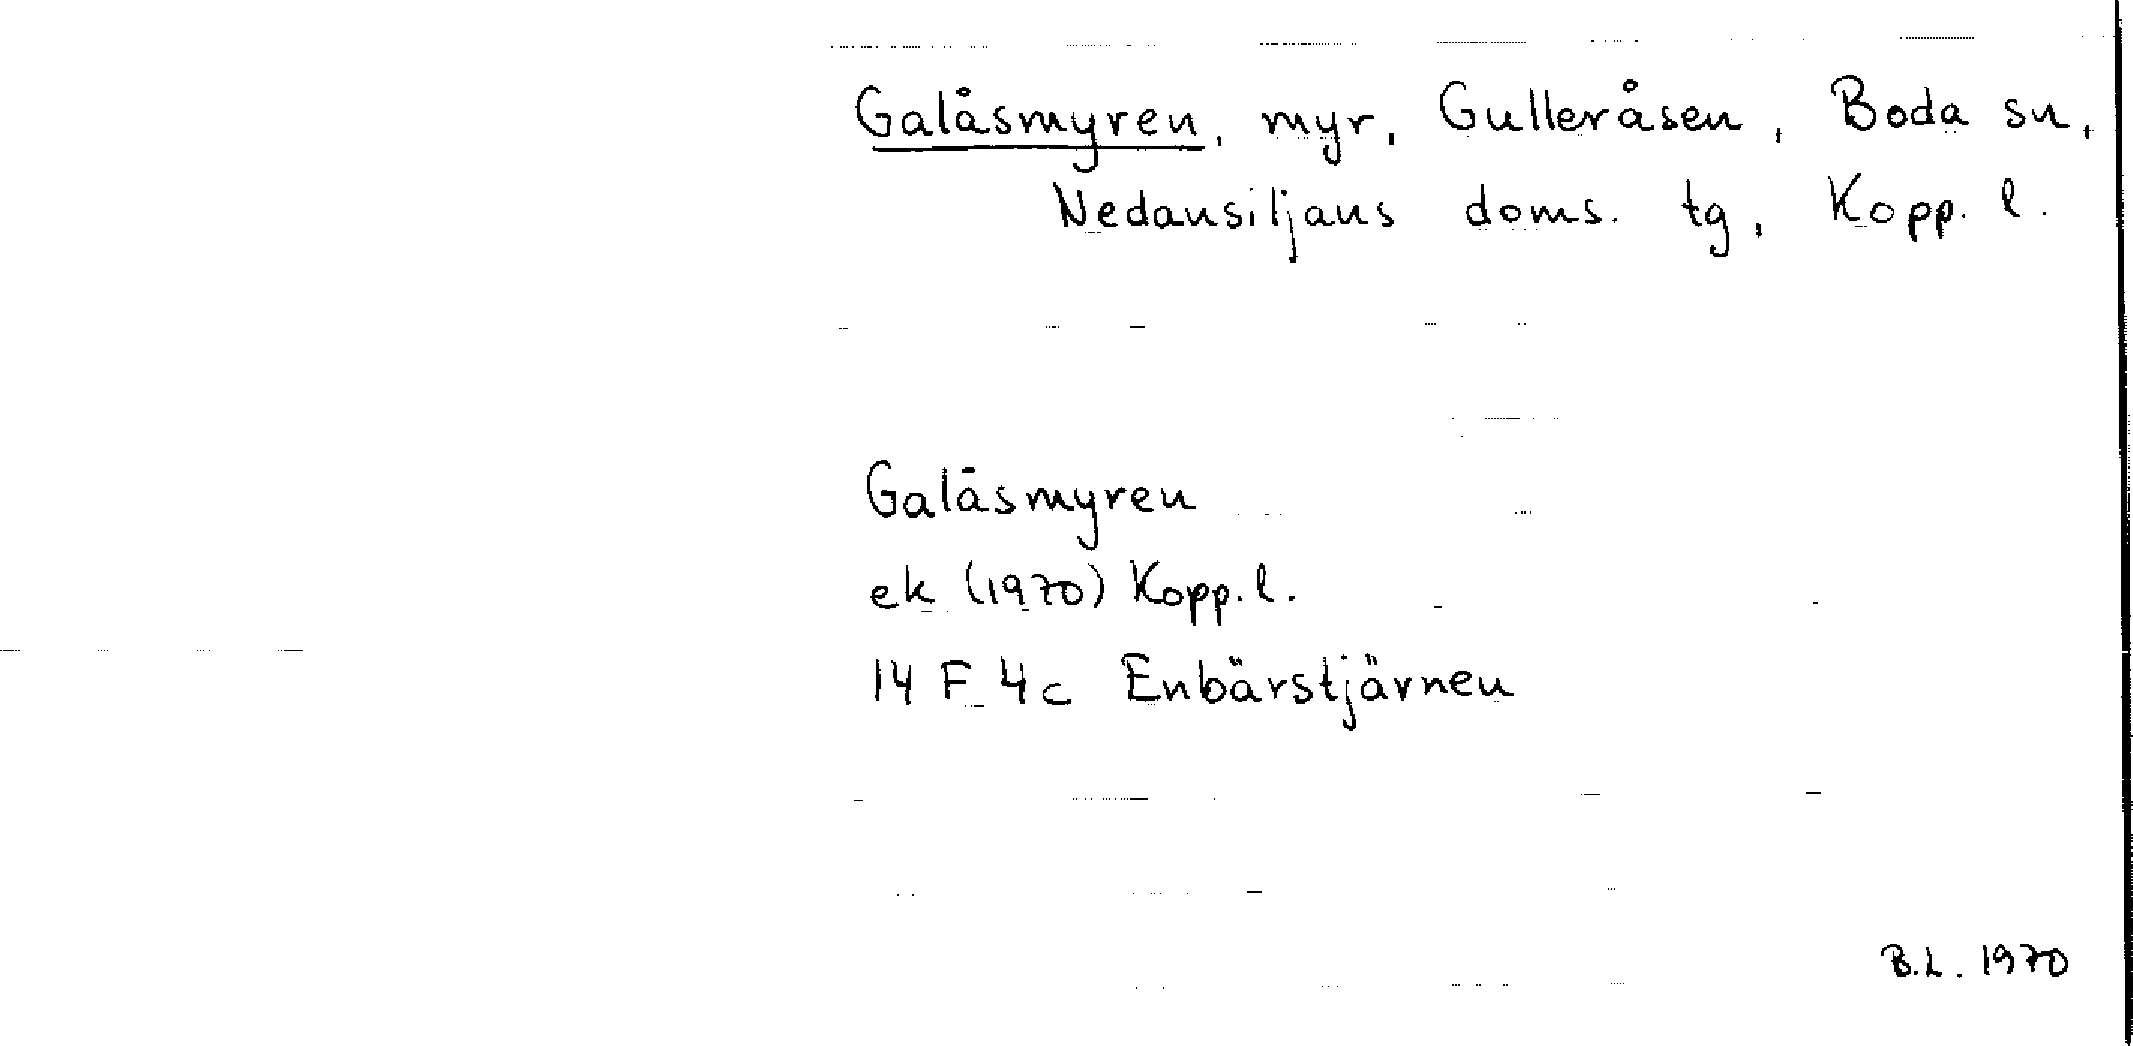 Galåsmyren, myr, Gulleråsen, Boda sn,
Nedansiljans doms. tg, Kopp. l.
Galåsmyren
ek (1970) Kopp. l.
14 F 4c Enbärstjärnen
B.L. 1970